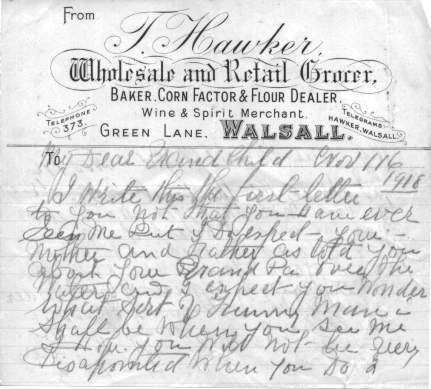 From
T. Hawker,
Wholesale and Retail Grocer,
Baker, Corn Factor & Flour Dealer
Wine & Spirit Merchant.
Telephone 373.
Telegrams Hawker, Walsall
Green Lane, Walsall.
To
My Dear Grand Child Nov 16
1918
I Write this the first letter
to you not that you have ever
Seen Me But I Do expect your
Mother and Father as told you
about your Grand Pa over the
Water and I expect you Wonder
What Sort of Funny Man i
Shall be When you See Me
I Hope you Will not be very
Disapointed When you Do